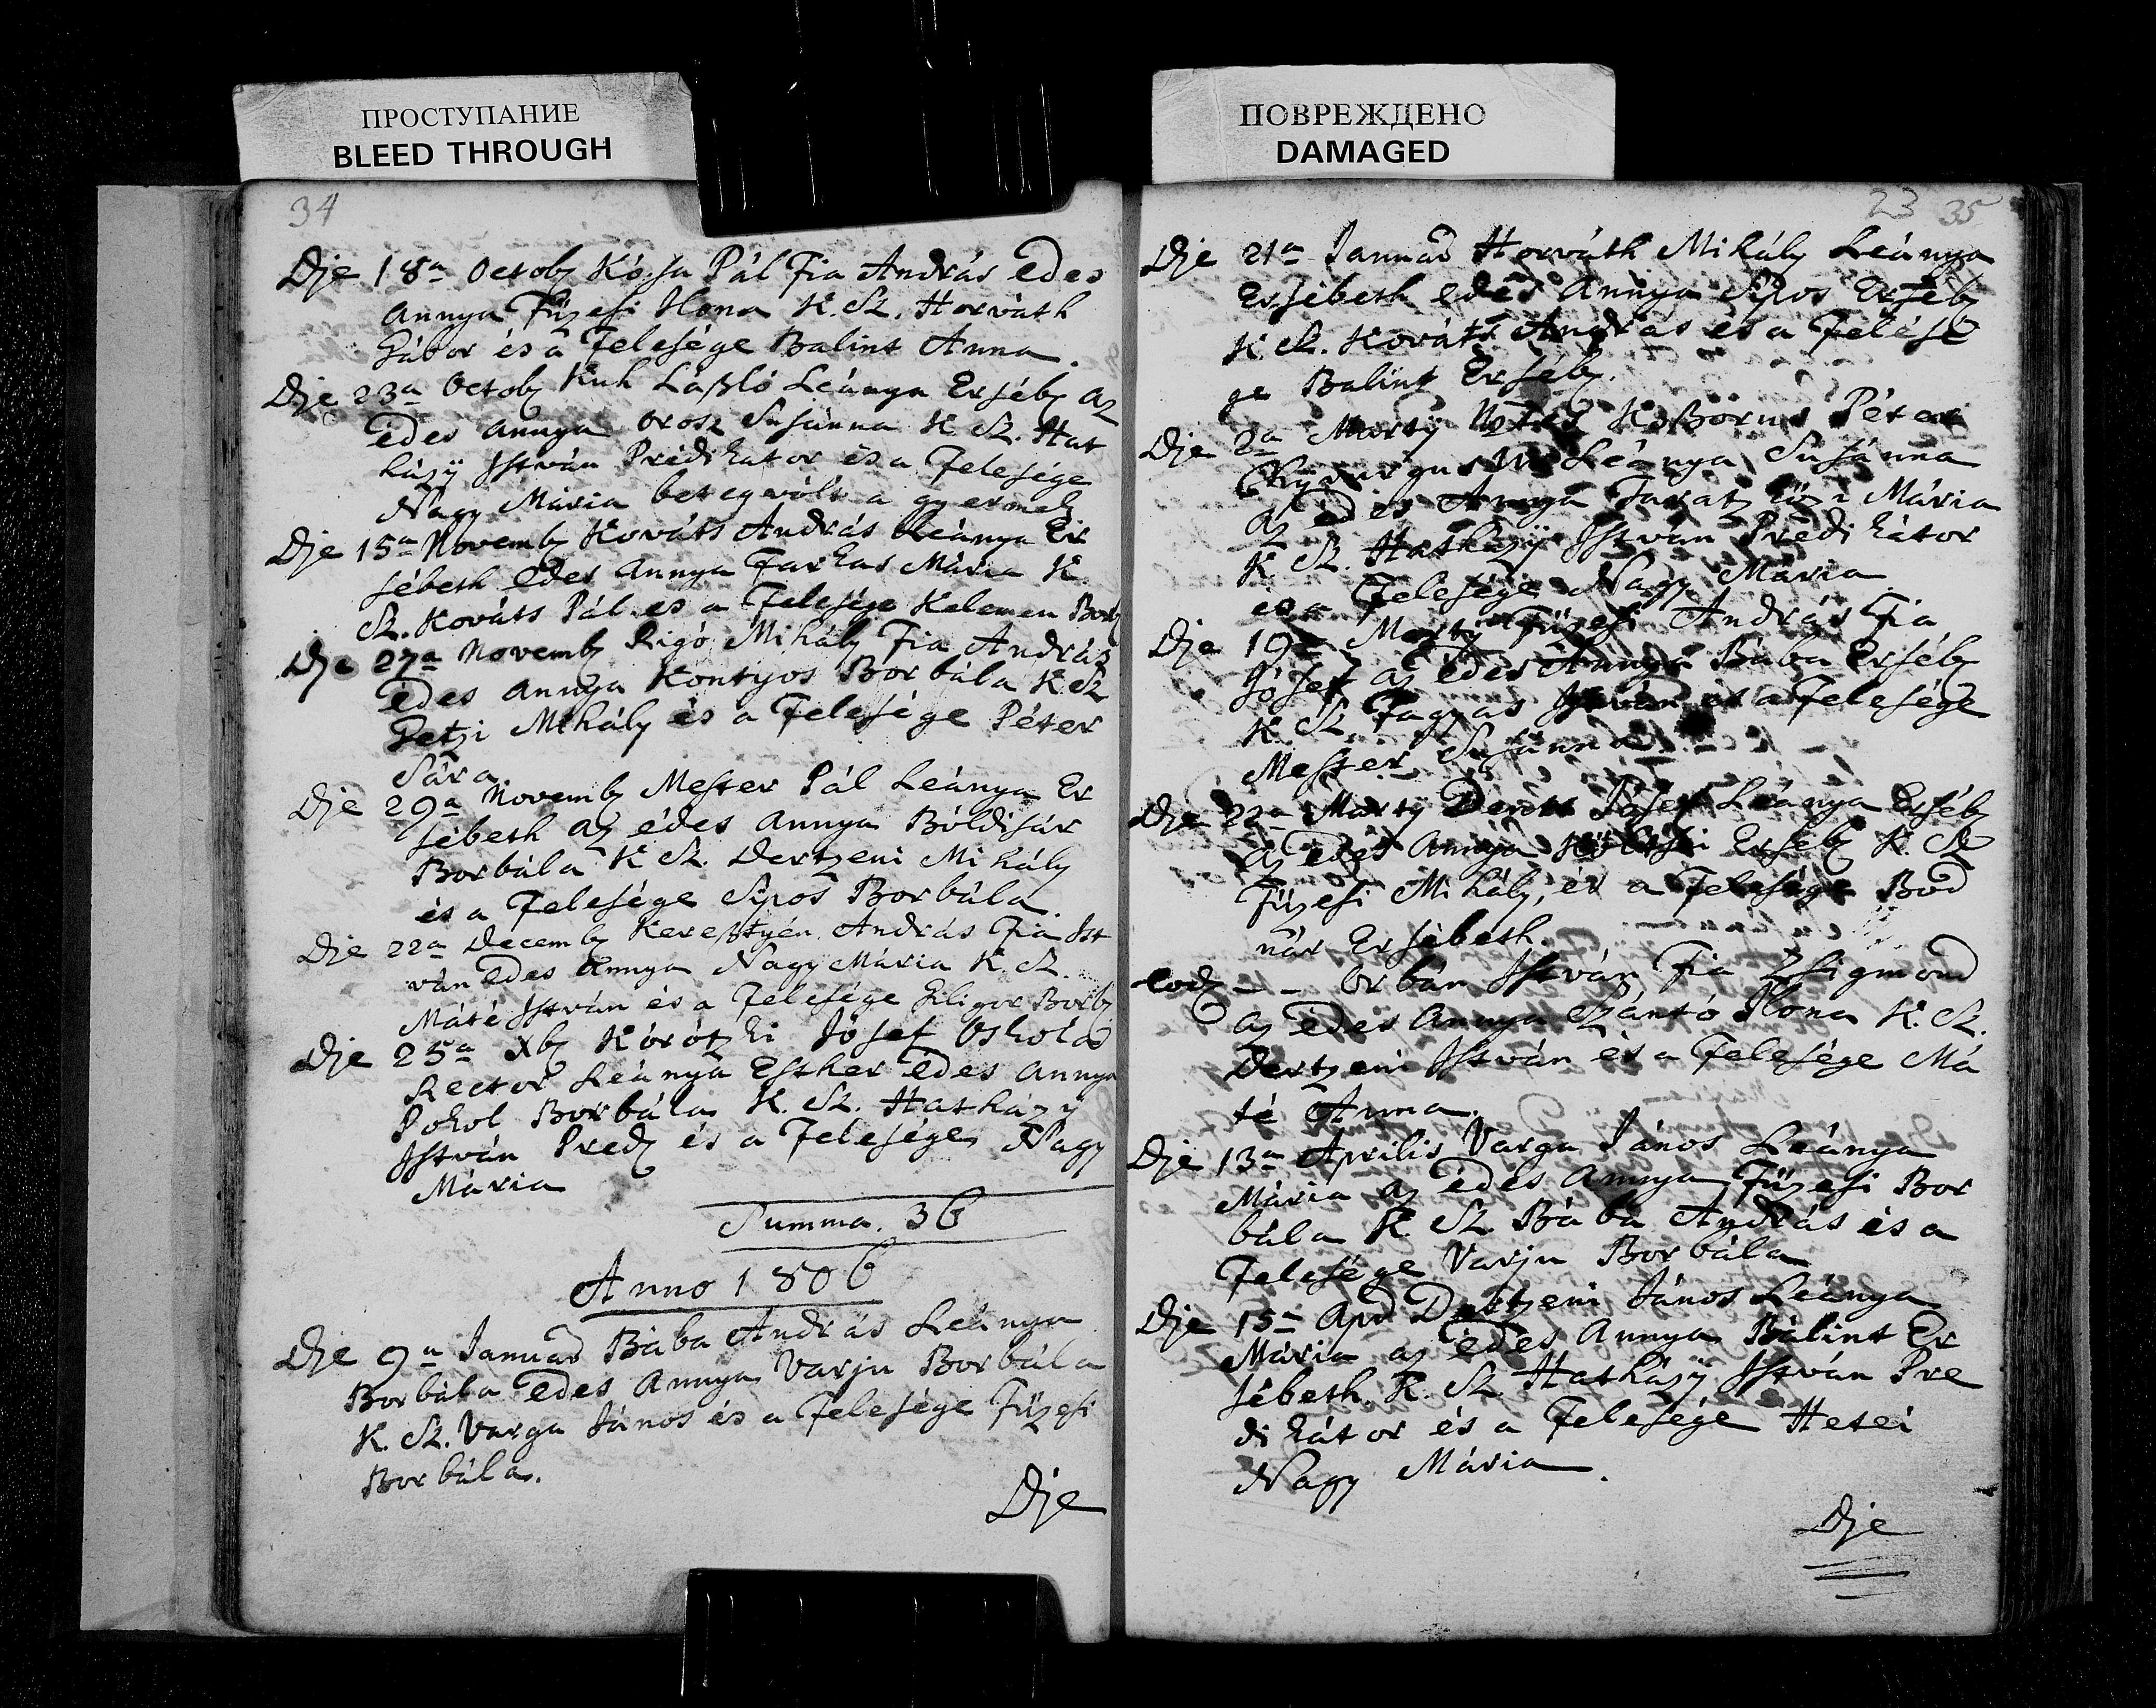 ПРОСТУПАНИЕ
BLEED THROUGH
34
Die 18a Octob Kósa Pál Fia András Edes
Annya Füzesi Ilona K. Sz. Horváth
Gábor és a Felesége Balint Anna.
Die 23a Octob Kuh László Leánya Erséb az
édes annya Orosz Susánna K. Sz. Hat
házÿ István Prédikator és a Felesége
Nagy Mária beteg vólt a gyermek
Die 15a Novemb Kováts András Leánya Er
sébeth Edes Annya Farkas Mária K.
Sz. Kováts Pál és a Felesége Kelemen Borb
Die 27a Novemb Rigó Mihály Fia András
édes Annya Kontyos Borbála K. Sz
Getzi Mihály és a Felesége Péter
Sára.
Die 29a Novemb Mester Pál Leánya Er
sébeth az édes Annya Bóldisár
Borbála K. Sz. Dertzeni Mihály
és a Felesége Sipos Borbála.
Die 22a Decemb Keresztyén András Fia Ist
ván Edes Annya Nagy Mária K. Sz.
Máté István és a Felesége Giligor Borb
Die 25a Xb Kórótzki Jósef Oskolá
Rector Leánya Esther Edes Annya
Pokol Borbála K. Sz. Hatházÿ
István Pred és a Felesége Nagy
Mária
Summa. 36
Anno 1806
Die 9a Januar Bába András Leánya
Borbála Edes Annya Varju Borbála
K. Sz. Varga János és a Felesége Füzesi
Borbála.
Die
ПОВРЕЖДЕНО
DAMAGED
23 35
Die 21a Januar Horváth Mihály Leánya
Ersébeth édes Annya Sipos Erséb
K. Sz. Kováts András és a Felesé
ge Balint Erséb.
Die 2a Marty Péter
Leánya Susánna
az édes Annya Mária
K. Sz. Hatházÿ István Prédikátor
és a Felesége Nagy Mária
Die 19a Marty Füzesi András Fia
Jósef az Edes Annya Bába Erséb
K. Sz. Fagyas István és a Felesége
Mester Susánna
Die 22a Marty Jósef Leánya Erséb
az Edes Annya Erséb K. Sz
Füzesi Mihály, és a Felesége Bod
nár Ersébeth.
eod - - Orbán István Fia Zsigmond
az Edes Annya Szántó Ilona K. Sz.
Dertzeni István és a Felesége Má
té Anna.
Die 13a Aprilis Varga János Leánya
Mária az Edes Annya Füzesi Bor
bála K. Sz Bába András és a
Felesége Varju Borbála
Die 15a Apr Dertzeni János Leánya
Mária az édes Annya Bálint Er
sébeth K. Sz Hatházÿ István Pre
dikátor és a Felesége Hetei
Nagy Mária.
Die